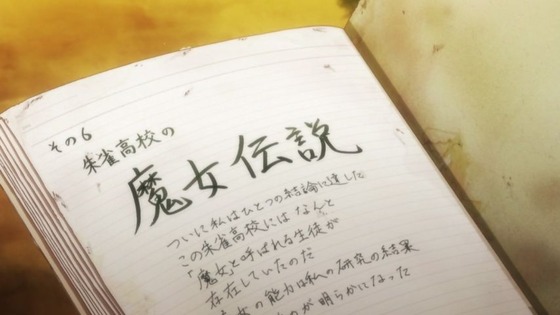 その6
朱雀高校の
魔女伝説
ついに私はひとつの結論に達した
この朱雀高校にはなんと
「魔女」と呼ばれる生徒が
存在していたのだ
女の能力は私の研究の結果
のが明らかになった